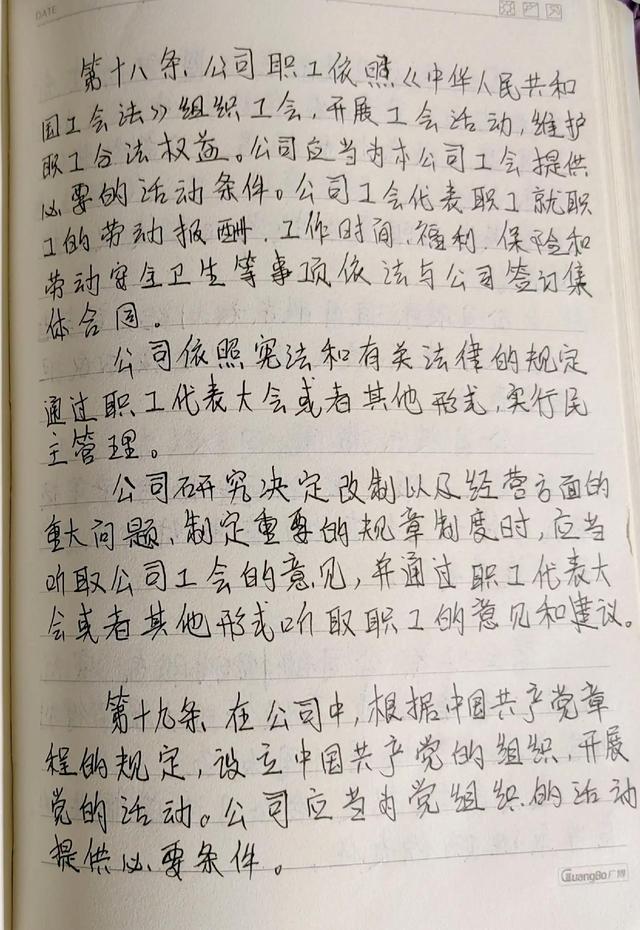 DATE
第十八条、公司职工依照《中华人民共和
国工会法》组织工会,开展工会活动,维护
职工合法权益。公司应当为本公司工会提供
必要的活动条件。公司工会代表职工就职
工的劳动报酬、工作时间、福利、保险和
劳动安全卫生等事项依法与公司签订集
体合同。
公司依照宪法和有关法律的规定
通过职工代表大会或者其他形式,实行民
主管理。
公司研究决定改制以及经营方面的
重大问题、制定重要的规章制度时,应当
听取公司工会的意见,并通过职工代表大
会或者其他形式听取职工的意见和建议。
第十九条、在公司中,根据中国共产党章
程的规定,设立中国共产党的组织,开展
党的活动。公司应当为党组织的活动
提供必要条件。
GuangBo广博